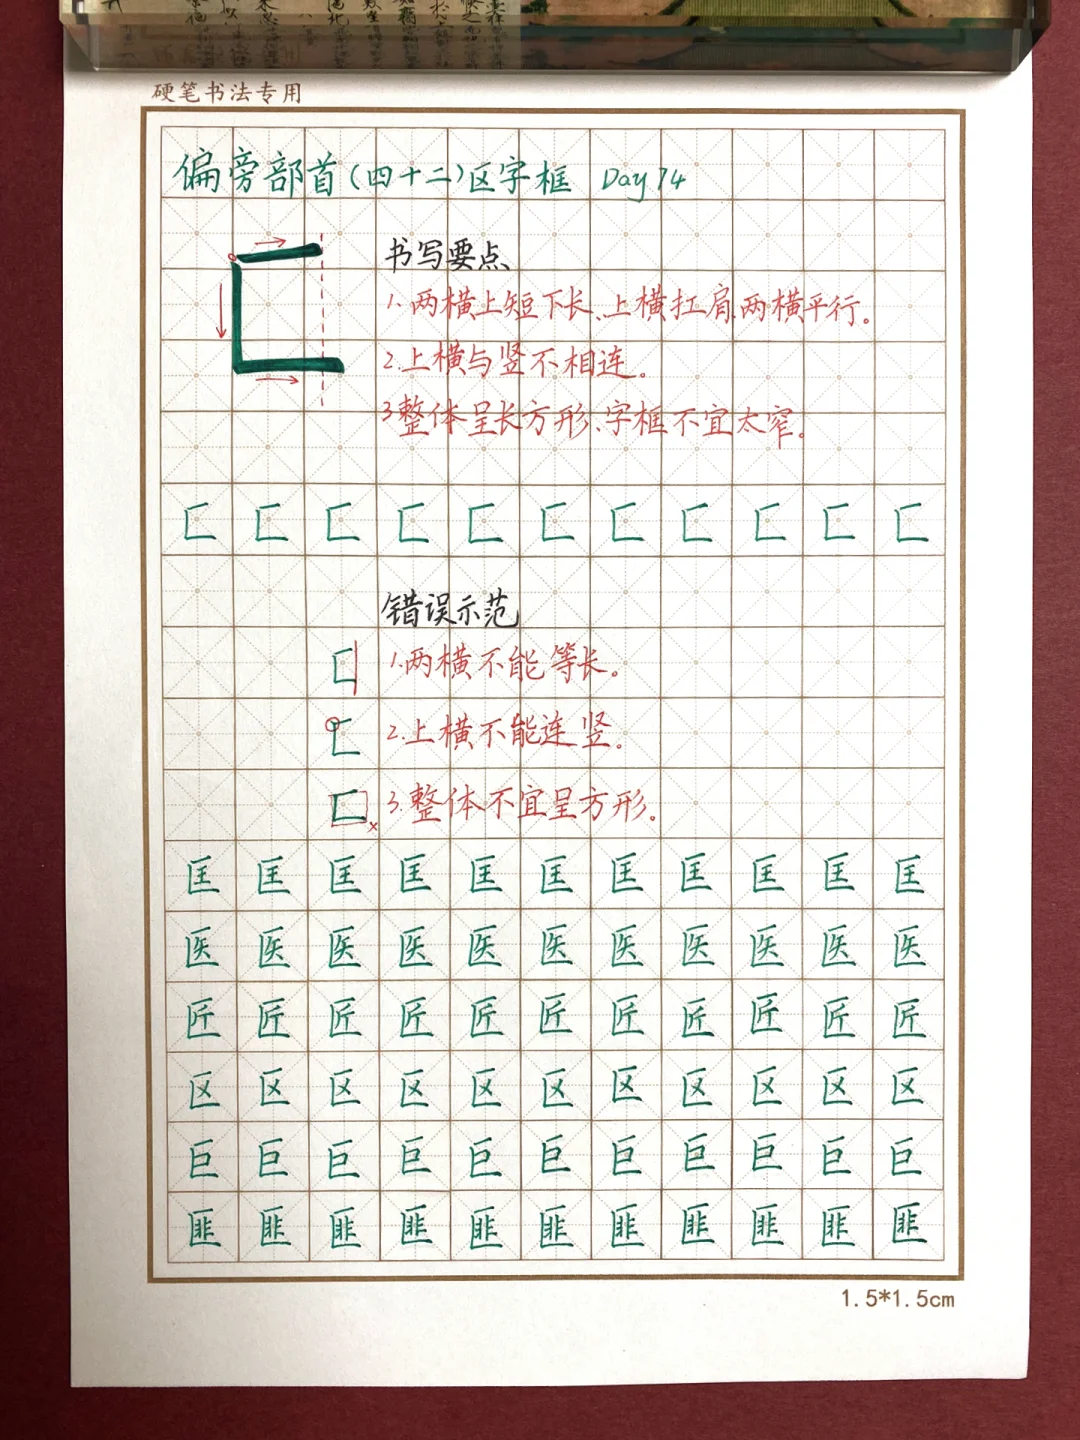 硬笔书法专用
偏旁部首(四十二)区字框 Day 74
书写要点、
1.两横上短下长、上横扛肩、两横平行。
2.上横与竖不相连。
3整体呈长方形、字框不宜太窄。
匚匚匚匚匚匚匚匚匚匚匚
错误示范
1.两横不能等长。
2.上横不能连竖。
3.整体不宜呈方形。
匡匡匡匡匡匡匡匡匡匡匡
医医医医医医医医医医医
匠匠匠匠匠匠匠匠匠匠匠
区区区区区区区区区区区
巨巨巨巨巨巨巨巨巨巨巨
匪匪匪匪匪匪匪匪匪匪匪
1.5*1.5cm